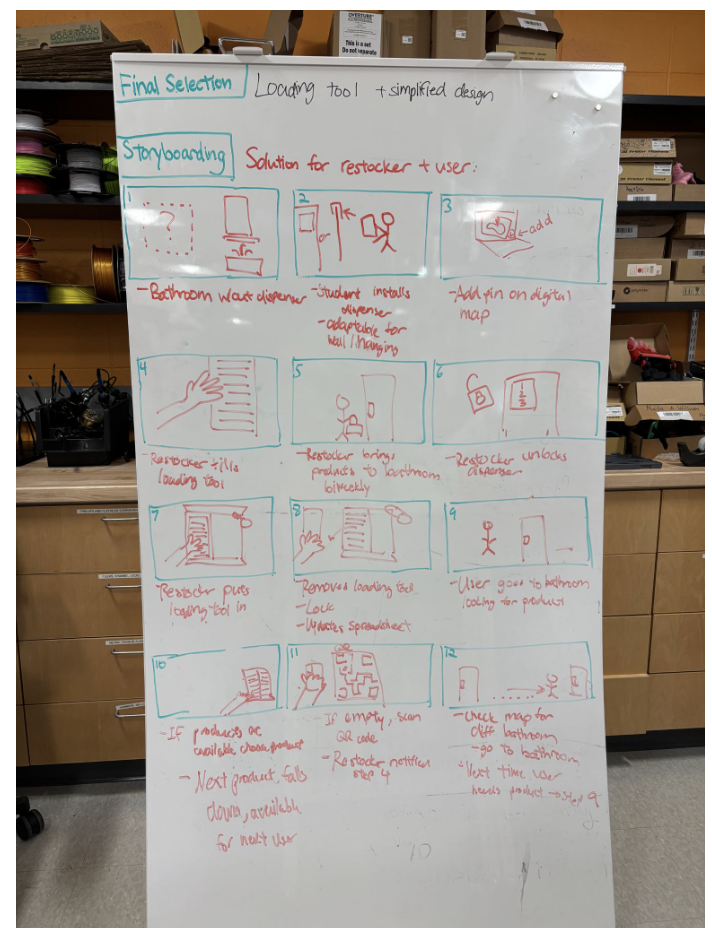 OVERTURE
This is a set
Do not separate
Final Selection
Loading tool + simplified design
Storyboarding
Solution for restocker + user:
1
?
2
or
3
add
- Bathroom w/out dispenser
- Student installs
dispenser
- adaptable for
wall / hanging
- Add pin on digital
map
4
5
6
1
2
3
- Restocker fills
loading tool
- Restocker brings
products to bathroom
biweekly
- Restocker unlocks
dispenser
7
8
9
- Restocker puts
loading tool in
- Removes loading tool
- Lock
- Updates spreadsheet
- User goes to bathroom
looking for product
10
11
12
- If products are
available choose product
- Next product falls
down, available
for next user
- If empty, scan
QR code
- Restocker notified
step 4
- Check map for
diff bathroom
- go to bathroom
- Next time user
needs product → step 9